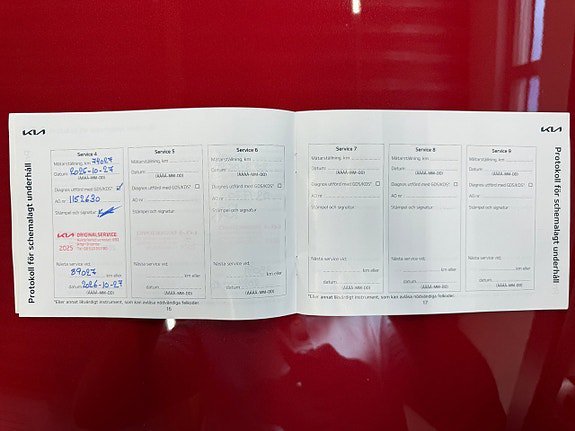 KIA
Protokoll för schemalagt underhåll
Service 4
Mätarställning, km 74027
Datum: 2025-10-27
(ÅÅÅÅ-MM-DD)
Diagnos utförd med GDS/KDS*
AO nr 1152630
Stämpel och signatur
KIA ORIGINALSERVICE
2025
Nästa service vid:
89027
km eller
datum 2026-10-27
(ÅÅÅÅ-MM-DD)
Service 5
Mätarställning, km
Datum:
(ÅÅÅÅ-MM-DD)
Diagnos utförd med GDS/KDS*
AO nr
Stämpel och signatur
Nästa service vid:
km eller
datum
(ÅÅÅÅ-MM-DD)
Service 6
Mätarställning, km
Datum:
(ÅÅÅÅ-MM-DD)
Diagnos utförd med GDS/KDS*
AO nr
Stämpel och signatur
Nästa service vid:
km eller
datum
(ÅÅÅÅ-MM-DD)
*Eller annat likvärdigt instrument, som kan avläsa nödvändiga felkoder.
16
KIA
Protokoll för schemalagt underhåll
Service 7
Mätarställning, km
Datum:
(ÅÅÅÅ-MM-DD)
Diagnos utförd med GDS/KDS*
AO nr
Stämpel och signatur
Nästa service vid:
km eller
datum
(ÅÅÅÅ-MM-DD)
Service 8
Mätarställning, km
Datum:
(ÅÅÅÅ-MM-DD)
Diagnos utförd med GDS/KDS*
AO nr
Stämpel och signatur
Nästa service vid:
km eller
datum
(ÅÅÅÅ-MM-DD)
Service 9
Mätarställning, km
Datum:
(ÅÅÅÅ-MM-DD)
Diagnos utförd med GDS/KDS*
AO nr
Stämpel och signatur
Nästa service vid:
km eller
datum
(ÅÅÅÅ-MM-DD)
*Eller annat likvärdigt instrument, som kan avläsa nödvändiga felkoder.
17